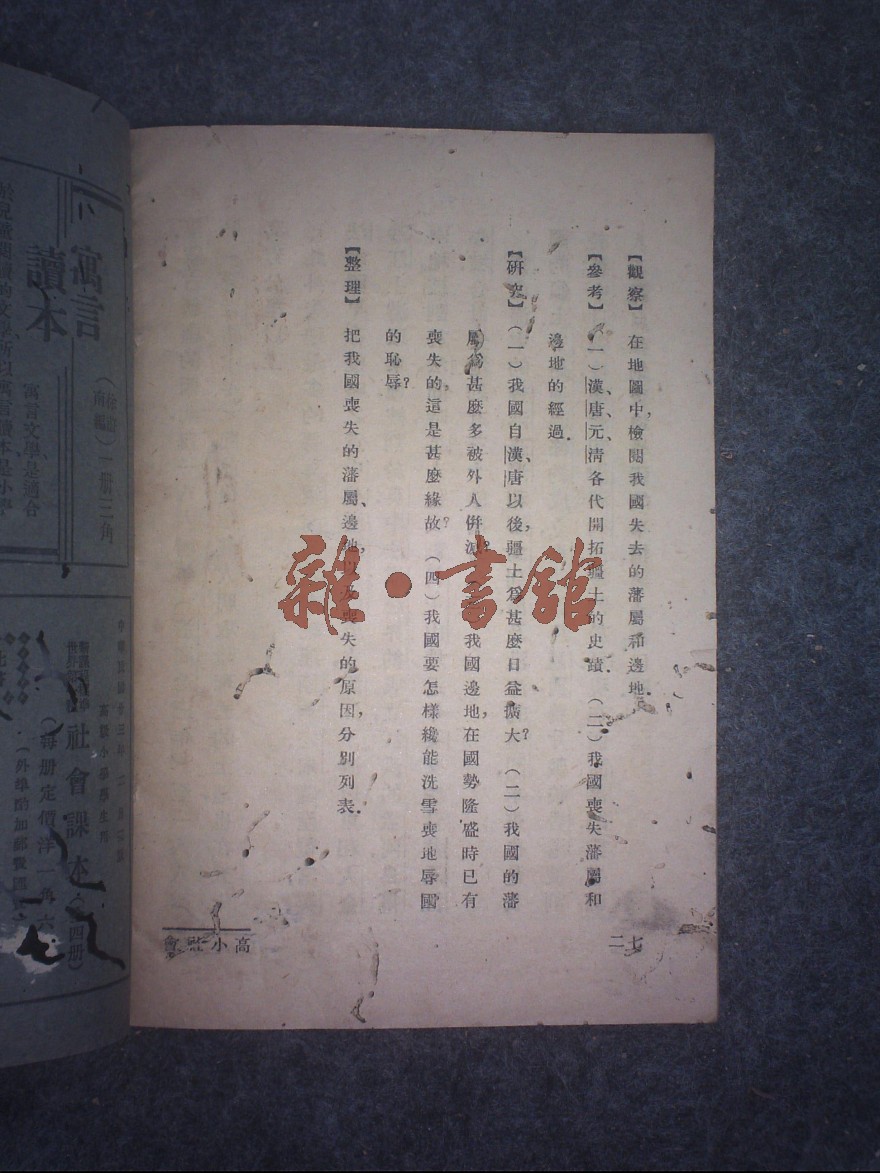 【觀察】 在地圖中,檢閱我國失去的藩屬和邊地.
【參考】 (一)漢、唐、元、清各代開拓疆土的史蹟. (二)我國喪失藩屬和
邊地的經過.
【研究】 (一)我國自漢、唐以後,疆土爲甚麼日益擴大? (二)我國的藩
屬,爲甚麼多被外人併 我國邊地,在國勢隆盛時已有
喪失的,這是甚麼緣故? (四)我國要怎樣纔能洗雪喪地辱國
的恥辱?
【整理】 把我國喪失的藩屬、邊地,以及喪失的原因,分別列表.
七二
高小社會
雜·書館
寓言
讀本
一册三角
寓言文學,是適合
所以寓言讀本是小學
社會課本(四册)
(每册定價洋一角六
(外埠酌加郵費